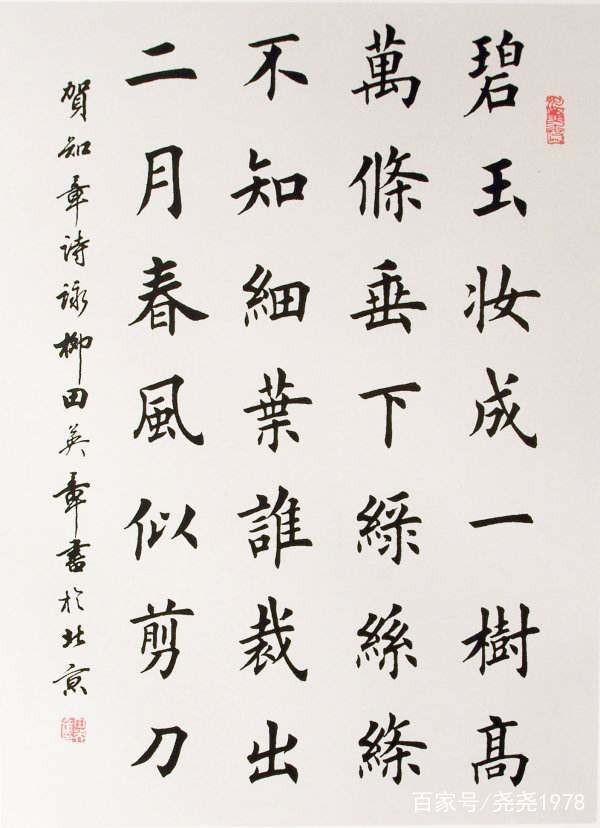 碧玉妆成一樹高
萬條垂下緑絲絛
不知細葉誰裁出
二月春風似剪刀
賀知章詩詠柳田英章書於北京
百家号/尧尧1978